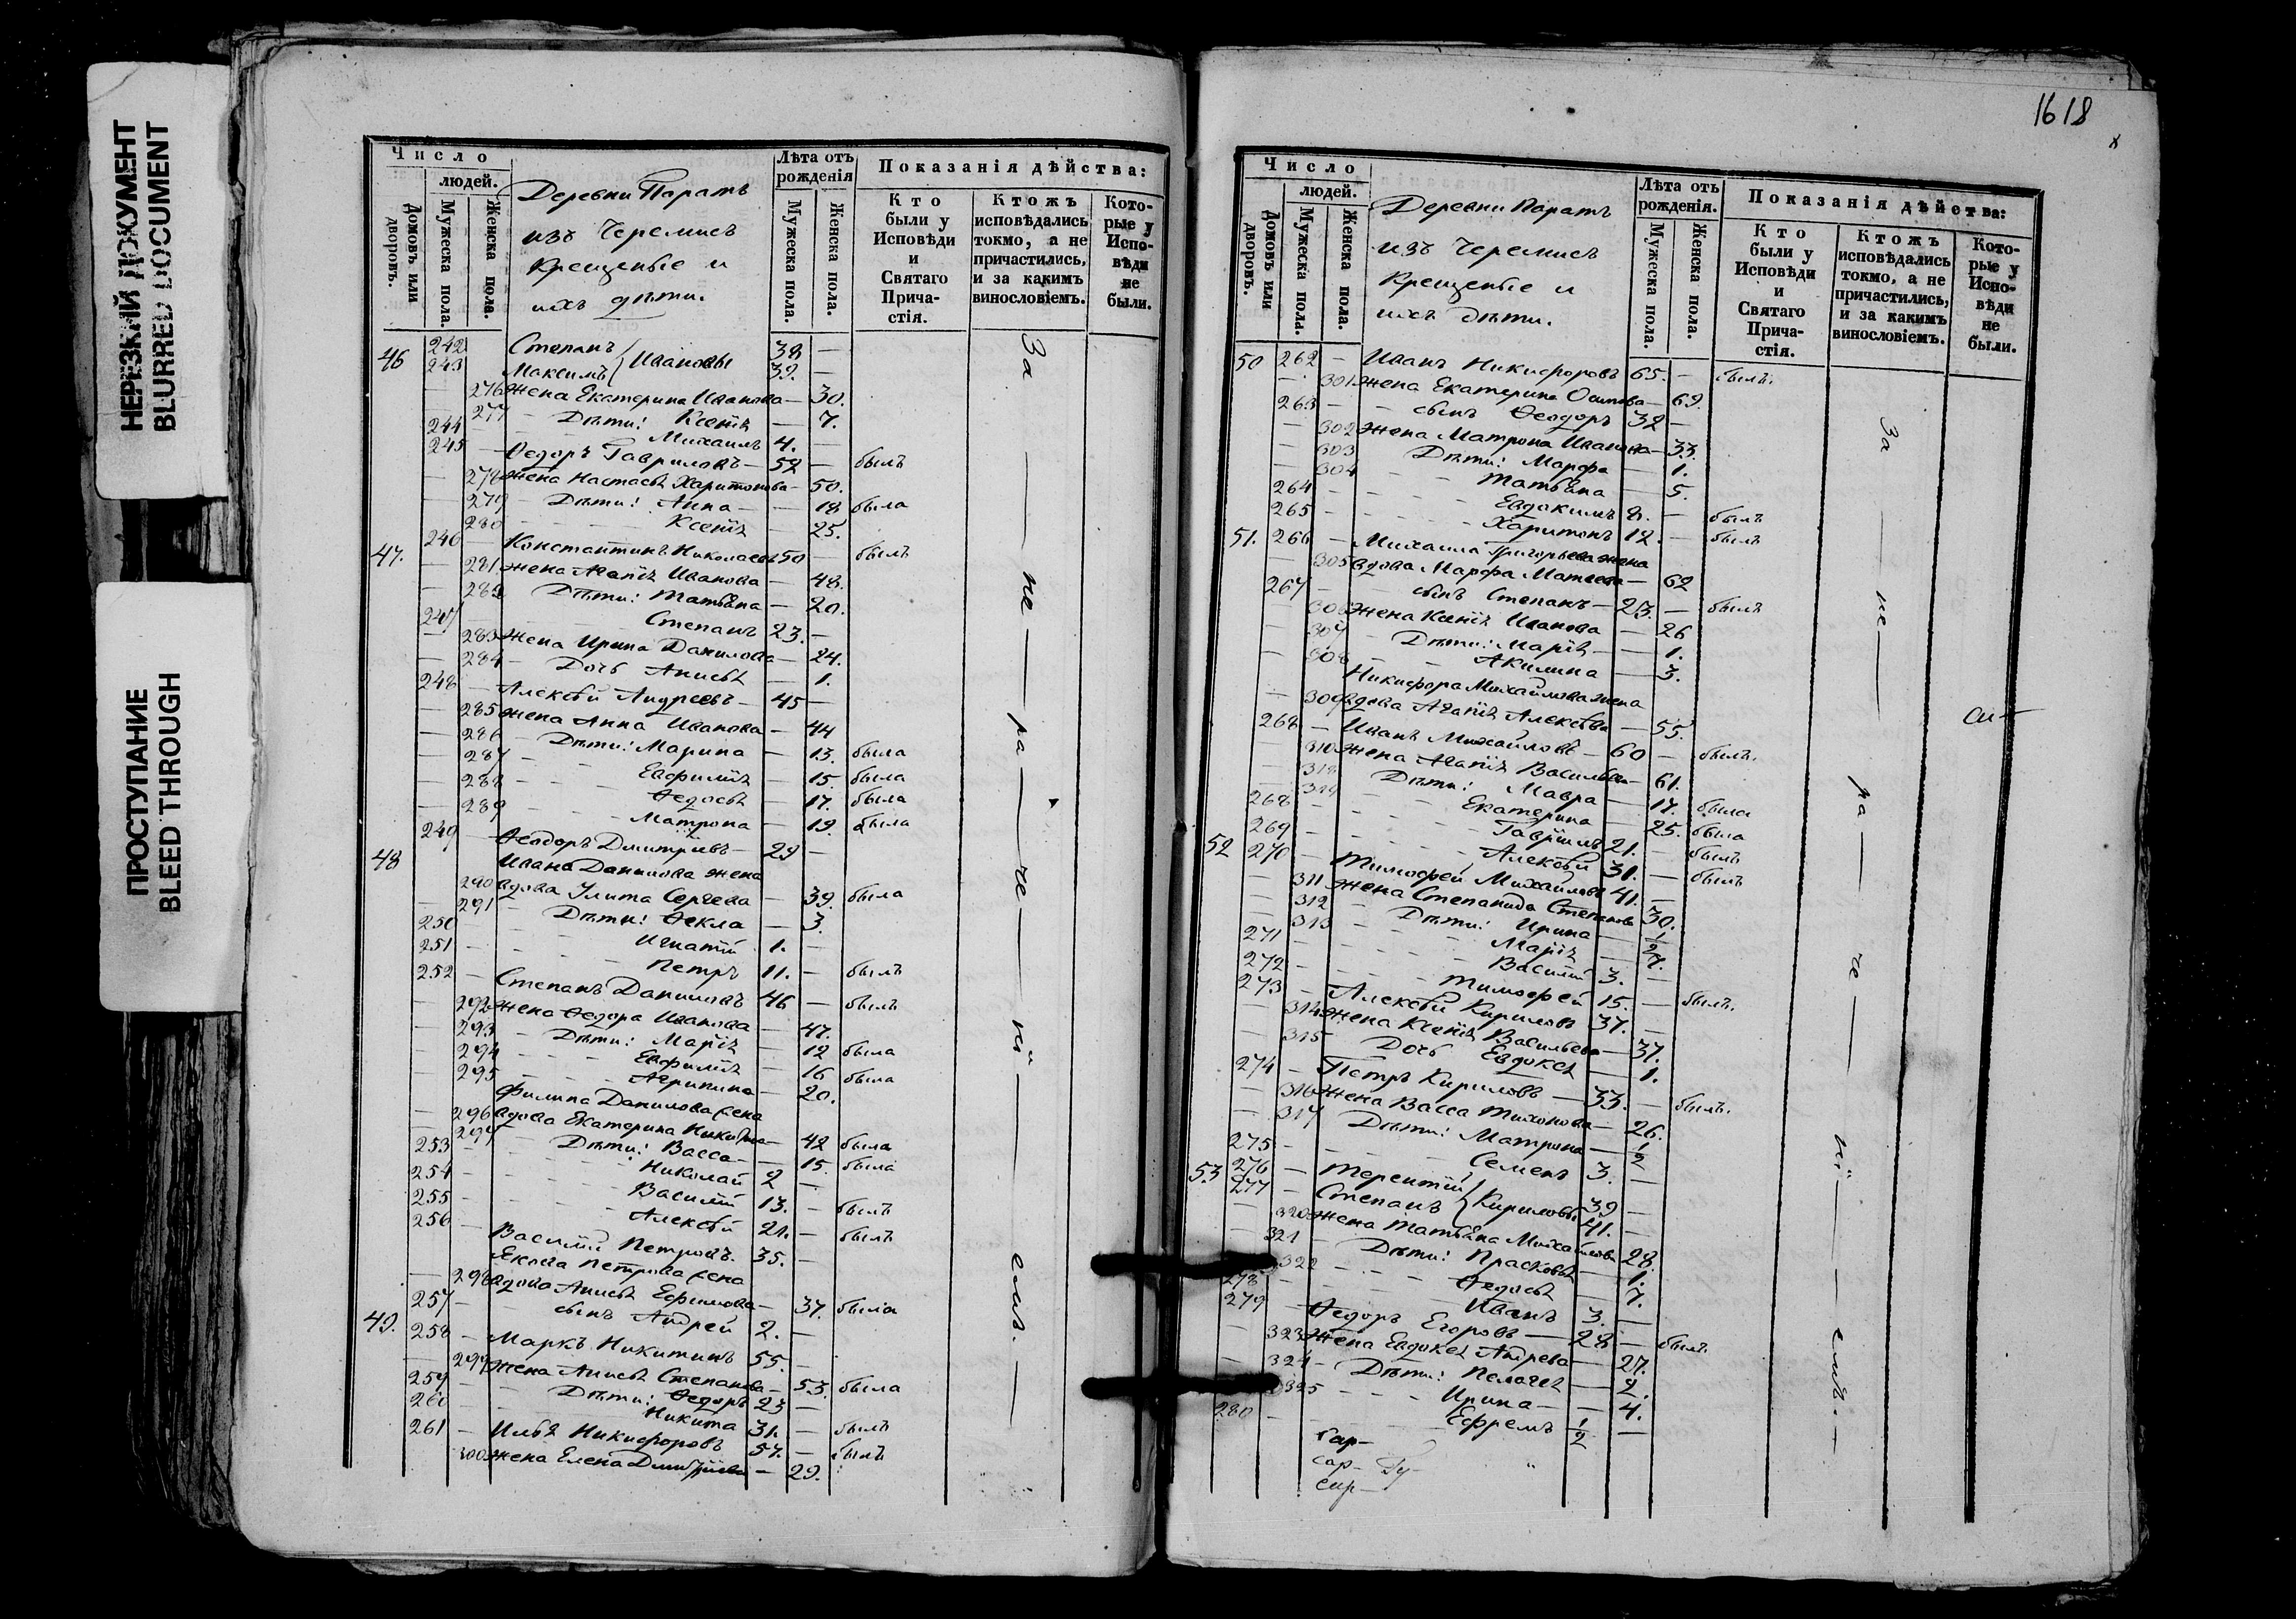 НЕРЕЗКИЙ ДОКУМЕНТ
BLURRED DOCUMENT
ПРОСТУПАНИЕ
BLEED THROUGH
Число
людей.
Домовъ или дворовъ.
Мужеска пола.
Женска пола.
Деревни Паратъ
изъ Черемисъ
Крещеные и
ихъ дѣти.
Лѣта отъ рожденія
Мужеска пола.
Женска пола.
Показанія дѣйства:
Кто были у Исповѣди и Святаго Прича-стія.
Ктожъ исповѣдались токмо, а не причастились, и за какимъ винословіемъ.
Кото-рые у Испо-вѣди не были.
46 242 Степанъ } Ивановы 38 —
243 Максимъ 32. —
276 Жена Екатерина Иванова — 30.
277 Дѣти: Ксенія — 7.
244 Михаилъ 4. —
245 Ѳедоръ Гавриловъ — 52 — былъ
278 Жена Настасья Харитонова — 50.
279 Дѣти: Анна — 18 была
280 Ксенія — 25.
47. 246 Константинъ Николаевъ 50 — былъ
281 Жена Агапія Иванова — 48.
282 Дѣти: Татьяна — 20.
247 Степанъ 23. —
283 Жена Ирина Данилова — 24.
284 Дочь Анисья — 1.
248 Алексѣй Андреевъ — 45 —
285 Жена Анна Иванова — 44
286 Дѣти: Марина — 13. была
287 Евфимія — 15. была
288 Ѳедосья — 17. была
289 Матрона — 19. была
249 Ѳеодоръ Дмитріевъ — 29 —
48 Ивана Данилова жена
290 вдова Улита Сергеева — 39. была
291 Дѣти: Ѳекла — 3.
250 Игнатій 1. —
251 Петръ 11. — былъ
252 Степанъ Даниловъ 46 — былъ
292 Жена Ѳедора Иванова — 47.
293 Дѣти: Марія — 12 была
294 Евфимія — 16 была
295 Агрипина — 20.
Филипа Данилова жена
296 вдова Екатерина — 42 была
297 Дѣти: Васса — 15. была
253 Николай 2 —
254 Василій 13. — былъ
255 Алексѣй 21. — былъ
256 Василій Петровъ. 35. —
Якова Петрова жена
298 вдова Анисья Ефимова — 37. была
257 сынъ Андрей 2. —
49. 258 Маркъ Никитинъ 55. —
299 Жена Анисья Степанова — 53. была
259 Дѣти: Ѳедоръ 23 —
260 Никита 31. — былъ
261 Илья Никифоровъ 57. — былъ
300 Жена Елена Дмитріева — 29.
За — не — ра — че — ні — емъ. —
1618
Число
людей.
Домовъ или дворовъ.
Мужеска пола.
Женска пола.
Деревни Паратъ
изъ Черемисъ
Крещеные и
ихъ дѣти.
Лѣта отъ рожденія.
Мужеска пола.
Женска пола.
Показанія дѣйства:
Кто были у Исповѣди и Святаго Прича-стія.
Ктожъ исповѣдались токмо, а не причастились, и за какимъ винословіемъ.
Кото-рые у Испо-вѣди не были.
50 262 — Иванъ Никифоровъ 65. — былъ.
301 Жена Екатерина Осипова — 69.
263 сынъ Ѳеодоръ 32 —
302 Жена Матрона Иванова — 33.
303 Дѣти: Марфа — 1.
304 Татьяна — 5.
264 Евдокимъ 8. — былъ
265 Харитонъ 12. — былъ
51. 266 Михаила Григорьева жена
305 вдова Марфа Матвеева — 62
267 сынъ Степанъ — 23. — былъ
306 Жена Ксенія Иванова — 26
307 Дѣти: Марія — 1.
308 Акилина — 3.
Никифора Михайлова жена
309 вдова Агапія Алексѣева — 55.
268 Иванъ Михайловъ — 60 — былъ.
310 Жена Агапія Васильева — 61.
318 Дѣти: Мавра — 17. была
319 Екатерина — 25. была
268 Гавріилъ 21. — былъ
269 Алексѣй 31. — былъ
52 270 Тимофей Михайловъ 41. —
311 Жена Степанида Степанова 30.
312 Дѣти: Ирина — 1/2
313 Марія — 7.
271 Василій 3. —
272 Тимофей 15. — былъ.
273 Алексѣй Кириловъ 37. —
314 Жена Ксенія Васильева — 37.
315 Дочь Евдокея — 1.
274 Петръ Кириловъ — 33. — былъ.
316 Жена Васса Тихонова — 26.
317 Дѣти: Матрона — 1/2
275 Семенъ 3. —
53 276 Терентій } Кириловы 39 —
277 Степанъ 41. —
320 Жена Татьяна Михайлова 28.
321 Дѣти: Прасковья — 1.
322 Ѳедосья — 7.
278 Иванъ 3. —
279 Ѳедоръ Егоровъ — 28 — былъ
323 Жена Евдокея Андреева — 27.
324 Дѣти: Пелагея — 2.
325 Ирина — 4.
280 Ефремъ 1/2 —
За — не — ра — че — ні — емъ. —